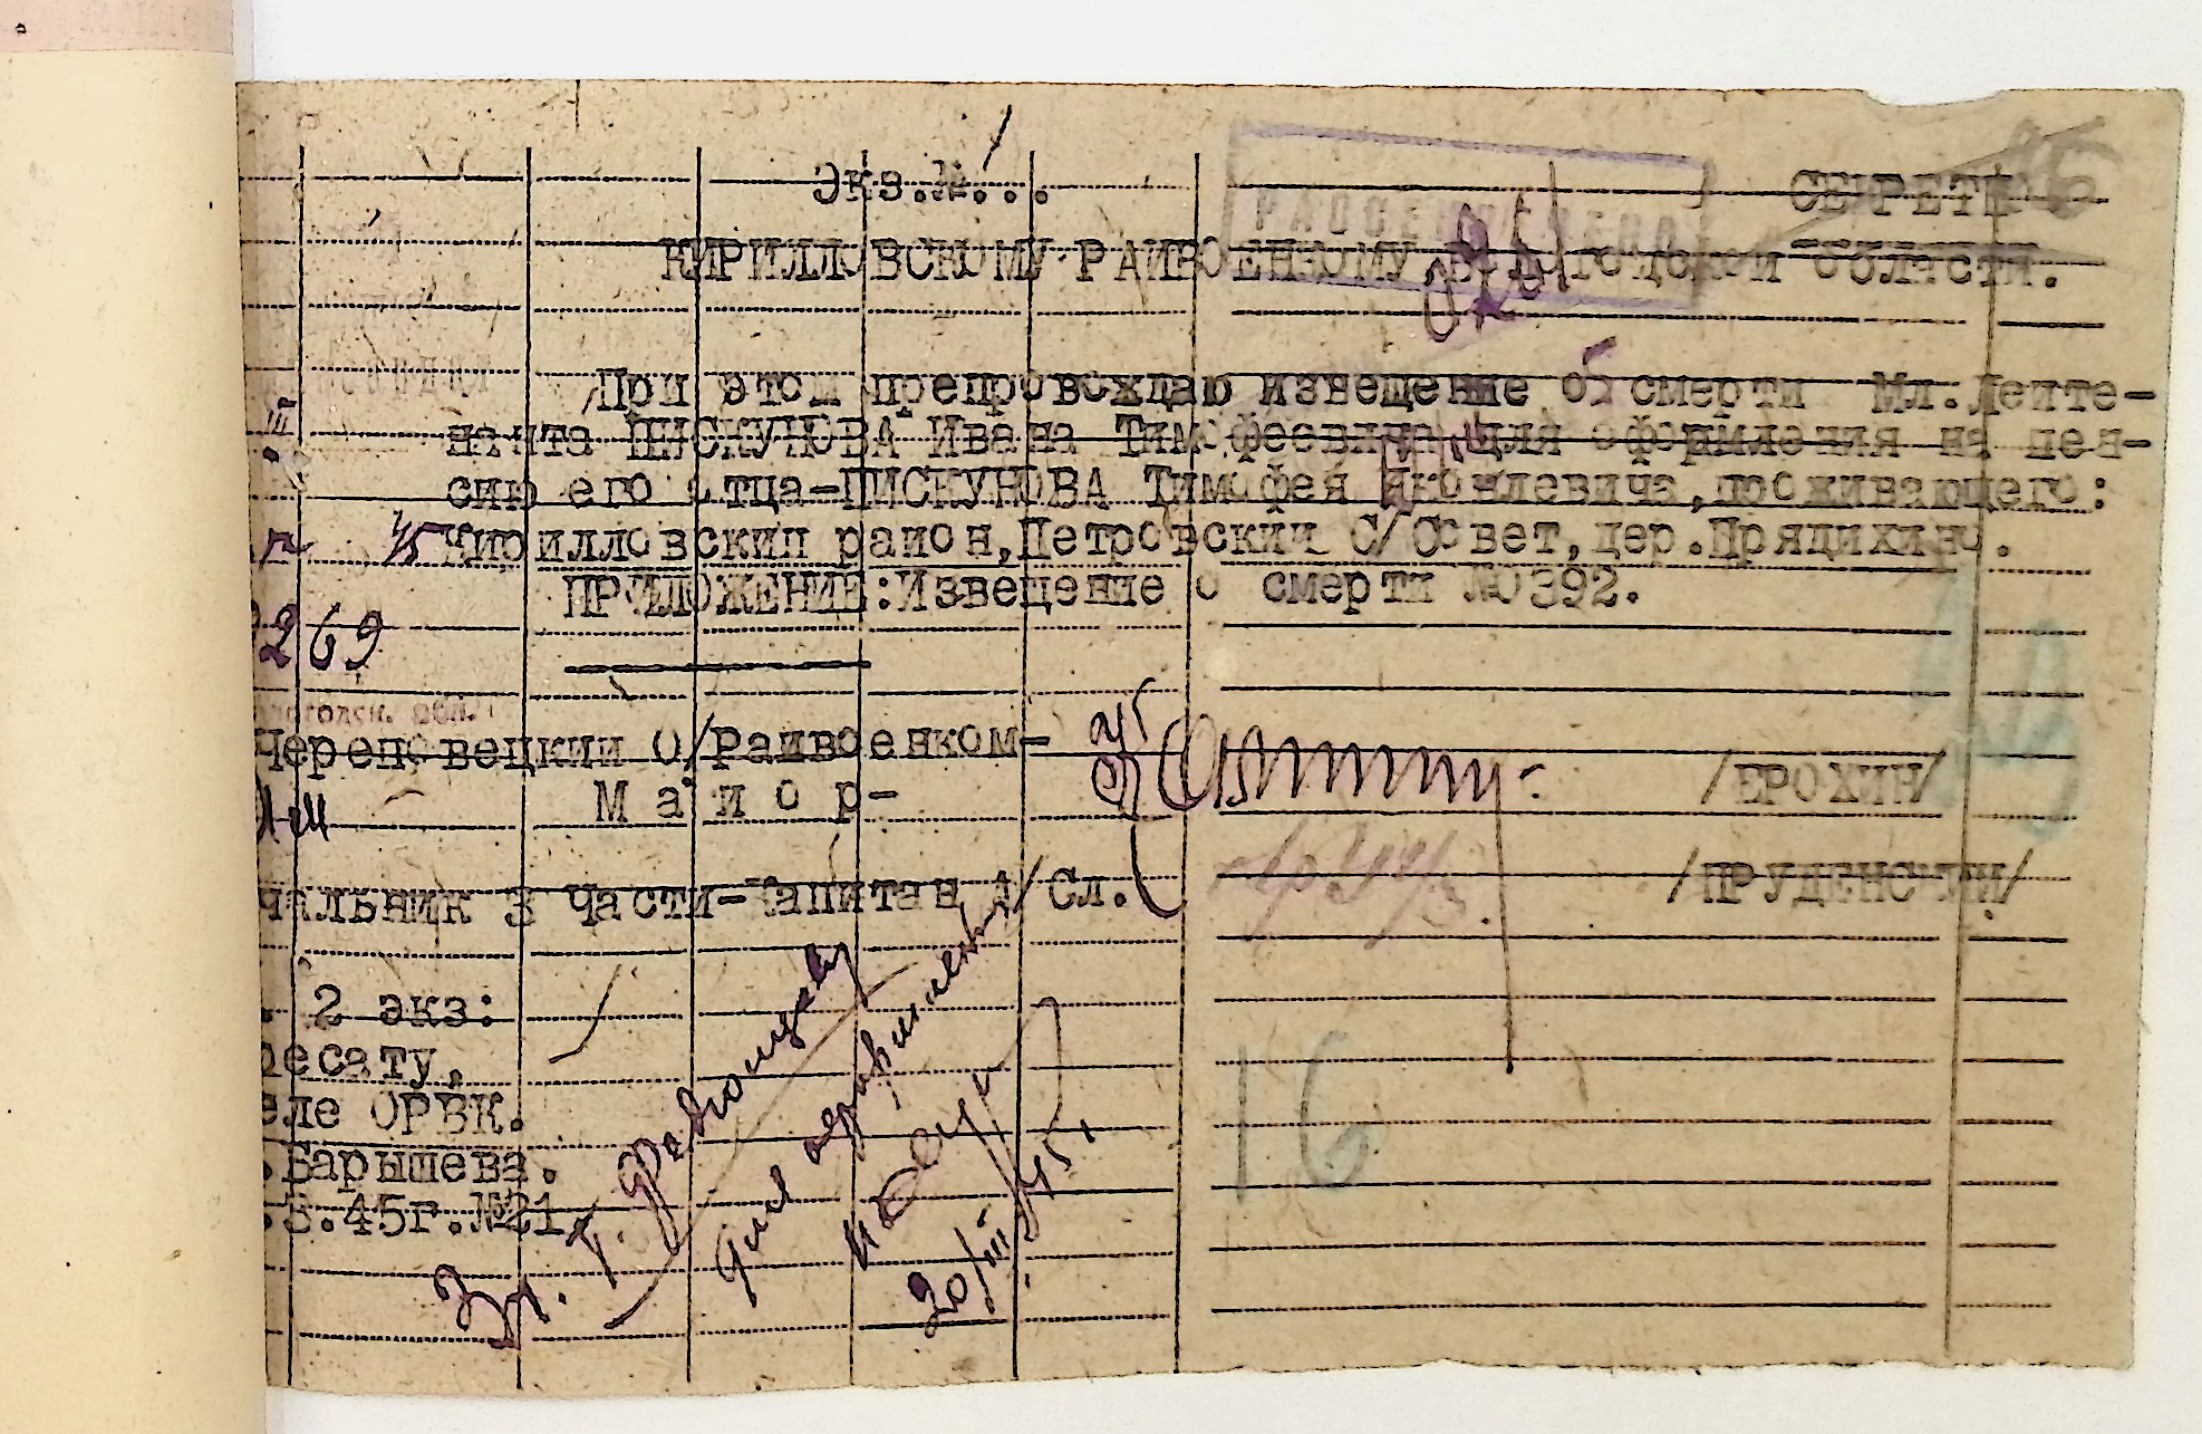 Экз.№...1
СЕКРЕТНО
КИРИЛЛОВСКОМУ РАЙВОЕНКОМУ, Вологодской области.
При этом препровождаю извещение об смерти Мл.Лейте-
нанта ПИСКУНОВА Ивана Тимофеевича для оформления на пен-
сию его отца-ПИСКУНОВА Тимофея Яковлевича, проживающего:
III
45 Кирилловский район, Петровский С/Совет, дер.Прядихино.
ПРИЛОЖЕНИЕ: Извещение о смерти №0392.
269
Череповецкий О/Райвоенком-
Майор- /ЕРОХИН/
чальник 3 части-Капитан А/Сл. /ПРУДЕНСКИЙ/
. 2 экз:
ресату.
еле ОРВК.
.Барышева.
.3.45г.№21
для
20/III 45.
16